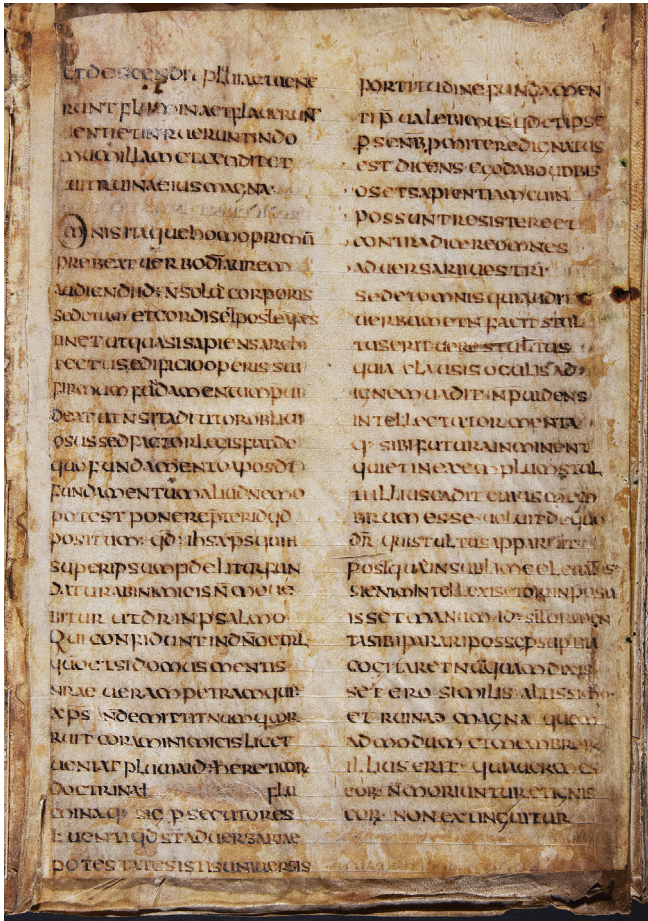 et descendit pluuia et uene
runt flumina et flauerunt
uenti et inruerunt in do
mum illam et cecidit et
fuit ruina eius magna
Omnis itaque homo primū
prebeat uerbo dī aurem
audiendi id: n̄ solū corporis
sed etiam et cordis
tinet ut quasi sapiens archi
tectus edificio operis sui
firmum fūdamentum
deat ut n̄ sit auditor obliui
osus sed factor legis
quo fundamento apos
fundamentum aliud nemo
potest ponere p̄ter id qd
positum: qd: ihs xps
super ipsum fidelitur fun
datur ab inimicis n̄ moue
bitur ut dr in psalmo
Qui confidunt in dn̄o
quō etsi domus mentis
nrae ueram petram qui
xps
ruit coram inimicis licet
ueniat pluuia id: hereticor
doctrina flu
mina q: sic p̄secutores
uenti qd st aduersariae
potestates istis uniuersis
fortitudine fundamen
ti p̄ualebimus qd et ipse
est dicens ego dabo uobis
os et sapientiam cui n̄
possunt resistere et
contradicere omnes
aduersarii uestri
Sed et omnis qui audit
uerbum et n̄ facit
tus erit uere stultus
quia clausis oculis ad
ignem uadit
intellectu tormenta
q: sibi futura inminent
qui et in exemplum
illius cadit cuius mem
brum esse uoluit de quo
dr̄ qui stultus apparuit
postquā in sublime eleuatus
si enim intellexiset
isset manum
tas sibi parari posse
cogitaret nūquam dixis
set ero similis altissimo
et ruina magna quem
admodum et membrorū
illius erit
eor: n̄ moriuntur et ignis
eor: non extinguitur